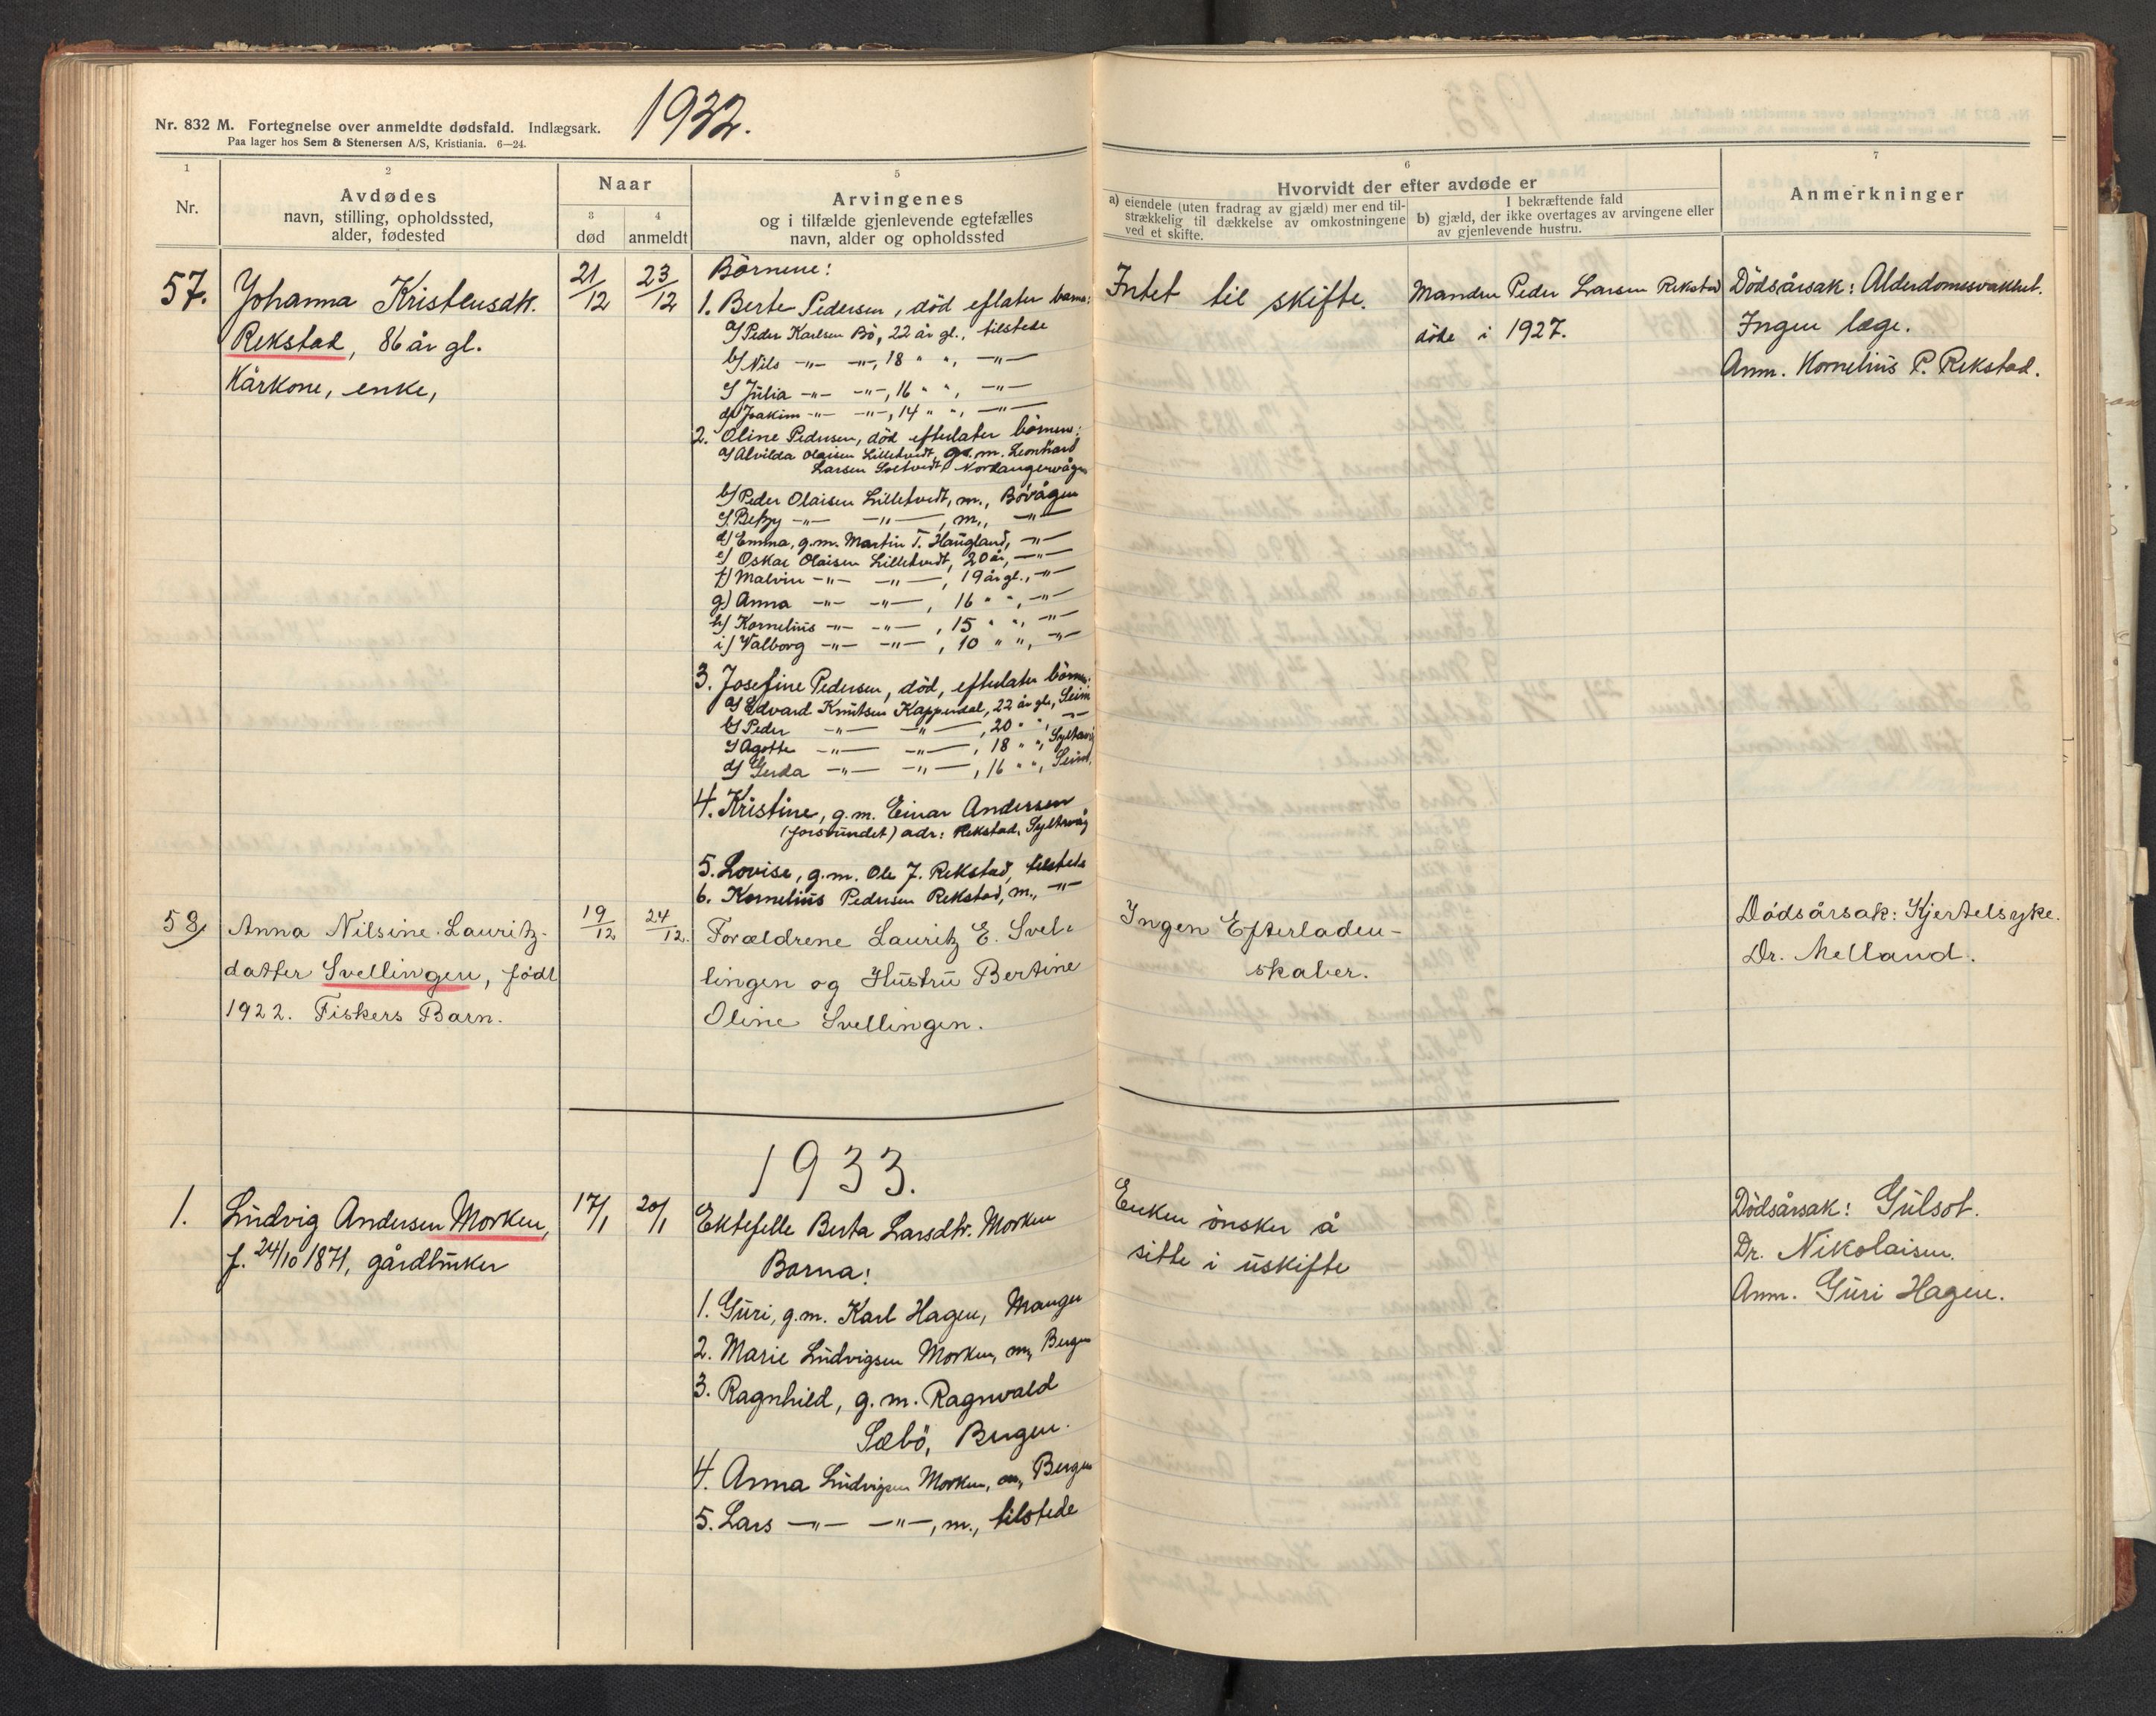 1932.
Nr. 832 M. Fortegnelse over anmeldte dødsfald. Indlægsark.
Paa lager hos Sem & Stenersen A/S, Kristiania. 6—24.
1
Nr.
2
Avdødes
navn, stilling, opholdssted,
alder, fødested
Naar
3
død
4
anmeldt
5
Arvingenes
og i tilfælde gjenlevende egtefælles
navn, alder og opholdssted
6
Hvorvidt der efter avdøde er
a) eiendele (uten fradrag av gjæld) mer end til-
strækkelig til dækkelse av omkostningene
ved et skifte.
I bekræftende fald
b) gjæld, der ikke overtages av arvingene eller
av gjenlevende hustru.
7
Anmerkninger
57.
Johanna Kristensdtr.
Rekstad, 86 år gl.
Kårkone, enke,
21/12
23/12
Börnene:
1. Berte Pedersen, död eflater barna:
a) Peder Karlsen Bö, 22 år gl., tilstede
b) Nils -"- -"-, 18 " ", -"-
c) Julia -"- -"-, 16 " ", -"-
d) Joakim -"- -"-, 14 " ", -"-
2. Oline Pedersen, död efterlater börnene:
a) Alvilda Olaisen Lilletvedt, g. m. Leonhard
Larsen Soltvedt, Nordangervågen
b) Peder Olaisen Lilletvedt, m., Bövågen
c) Betzy -"- -"-, m., -"-
d) Emma, g.m. Martin T. Haugland, -"-
e) Oskar Olaisen Lilletvedt, 20 år, -"-
f) Malvin -"- -"-, 19 år gl., -"-
g) Anna -"- -"-, 16 " ", -"-
h) Kornelius -"- -"-, 15 " ", -"-
i) Valborg -"- -"-, 10 " ", -"-
3. Josefine Pedersen, död, efterlater börnene:
a) Edvard Knutsen Kapperdal, 22 år gl., Seim
b) Peder -"- -"-, 20 " ", -"-
c) Agotte -"- -"-, 18 " ", Syltavåg
d) Gerda -"- -"-, 16 " ", Seim.
4. Kristine, g.m. Einar Andersen
(forsvundet) adr: Rekstad, Syltevåg
5. Lovise, g.m. Ole J. Rekstad, tilstede
6. Kornelius Pedersen Rekstad, m., -"-
Intet til skifte.
Manden Peder Larsen Rekstad
döde i 1927.
Dödsårsak: Alderdomssvakhet.
Ingen læge.
Anm. Kornelius P. Rekstad.
58/
Anna Nilsine Lauritz-
datter Svellingen, födt
1922. Fiskers Barn.
19/12
24/12.
Forældrene Lauritz E. Svel-
lingen og Hustru Bertine
Oline Svellingen.
Ingen Efterladen-
skaber.
Dödsårsak: Kjertelsyke.
Dr. Melland.
1933.
1.
Ludvig Andersen Morken,
f. 24/10 1871, gårdbruker
17/1
20/1
Ektefelle Berta Larsdtr. Morken
Barna:
1. Guri, g.m. Karl Hagen, Manger
2. Marie Ludvigsen Morken, m, Bergen
3. Ragnhild, g. m. Ragnvald
Sæbö, Bergen.
4. Anna Ludvigsen Morken, m, Bergen
5. Lars -"- -"-, m., tilstede
Enken önsker å
sitte i uskifte
Dödsårsak: Gulsot.
Dr. Nikolaisen.
Anm. Guri Hagen.